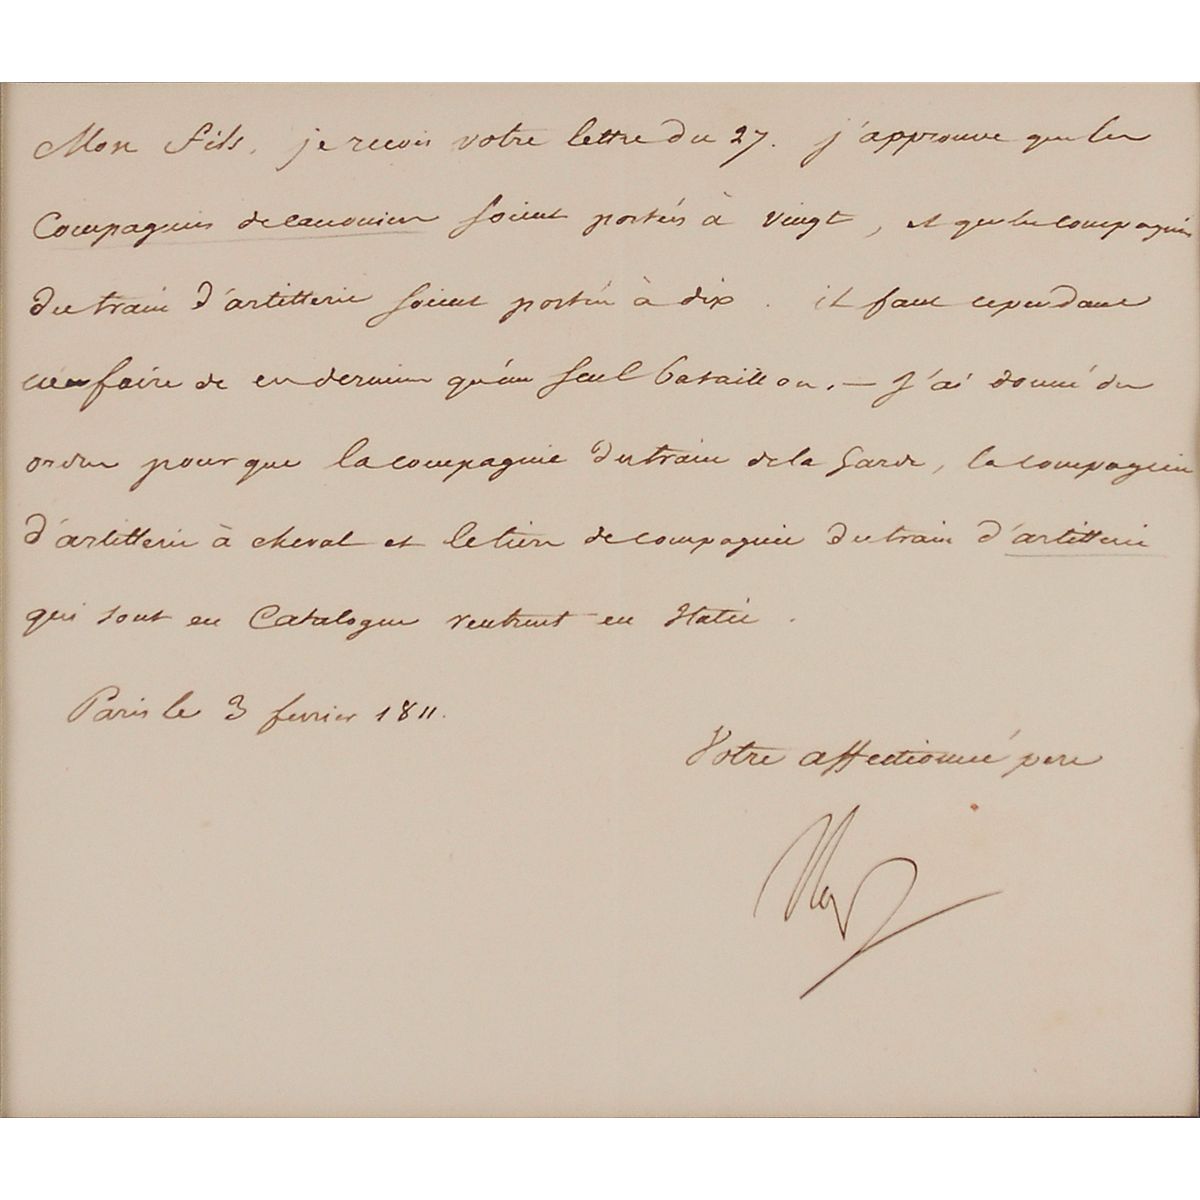 Mon fils, je reçois votre lettre du 27. j'approuve que les
Compagnies de canoniers soient portées à vingt, et que les compagnies
du train d'artillerie soient portées à dix. il faut cependant
n'en faire de ces derniers qu'un seul bataillon. — J'ai donné des
ordres pour que la compagnie du train de la Garde, la compagnie
d'artillerie à cheval et le tiers de compagnie du train d'artillerie
qui sont en Catalogne rentrent en Italie.
Paris le 3 fevrier 1811.
Votre affectionné pere
Nap